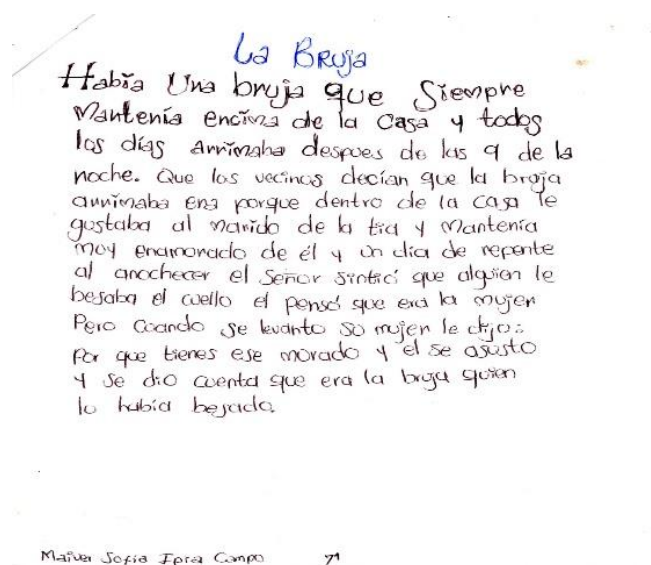 La Bruja
Había Una bruja que Siempre
Mantenía encima de la Casa y todos
los días Arrimaba despues de las 9 de la
noche. Que los vecinos decían que la bruja
arrimaba era porque dentro de la casa le
gustaba al marido de la tia y Mantenía
muy enamorado de él y un dia de repente
al anochecer el Señor sintió que alguien le
besaba el cuello el pensó que era la mujer
Pero Cuando se levanto su mujer le dijo:
Por que tienes ese morado y el se asusto
y se dio cuenta que era la bruja quien
lo había besado.
Sofia Campo